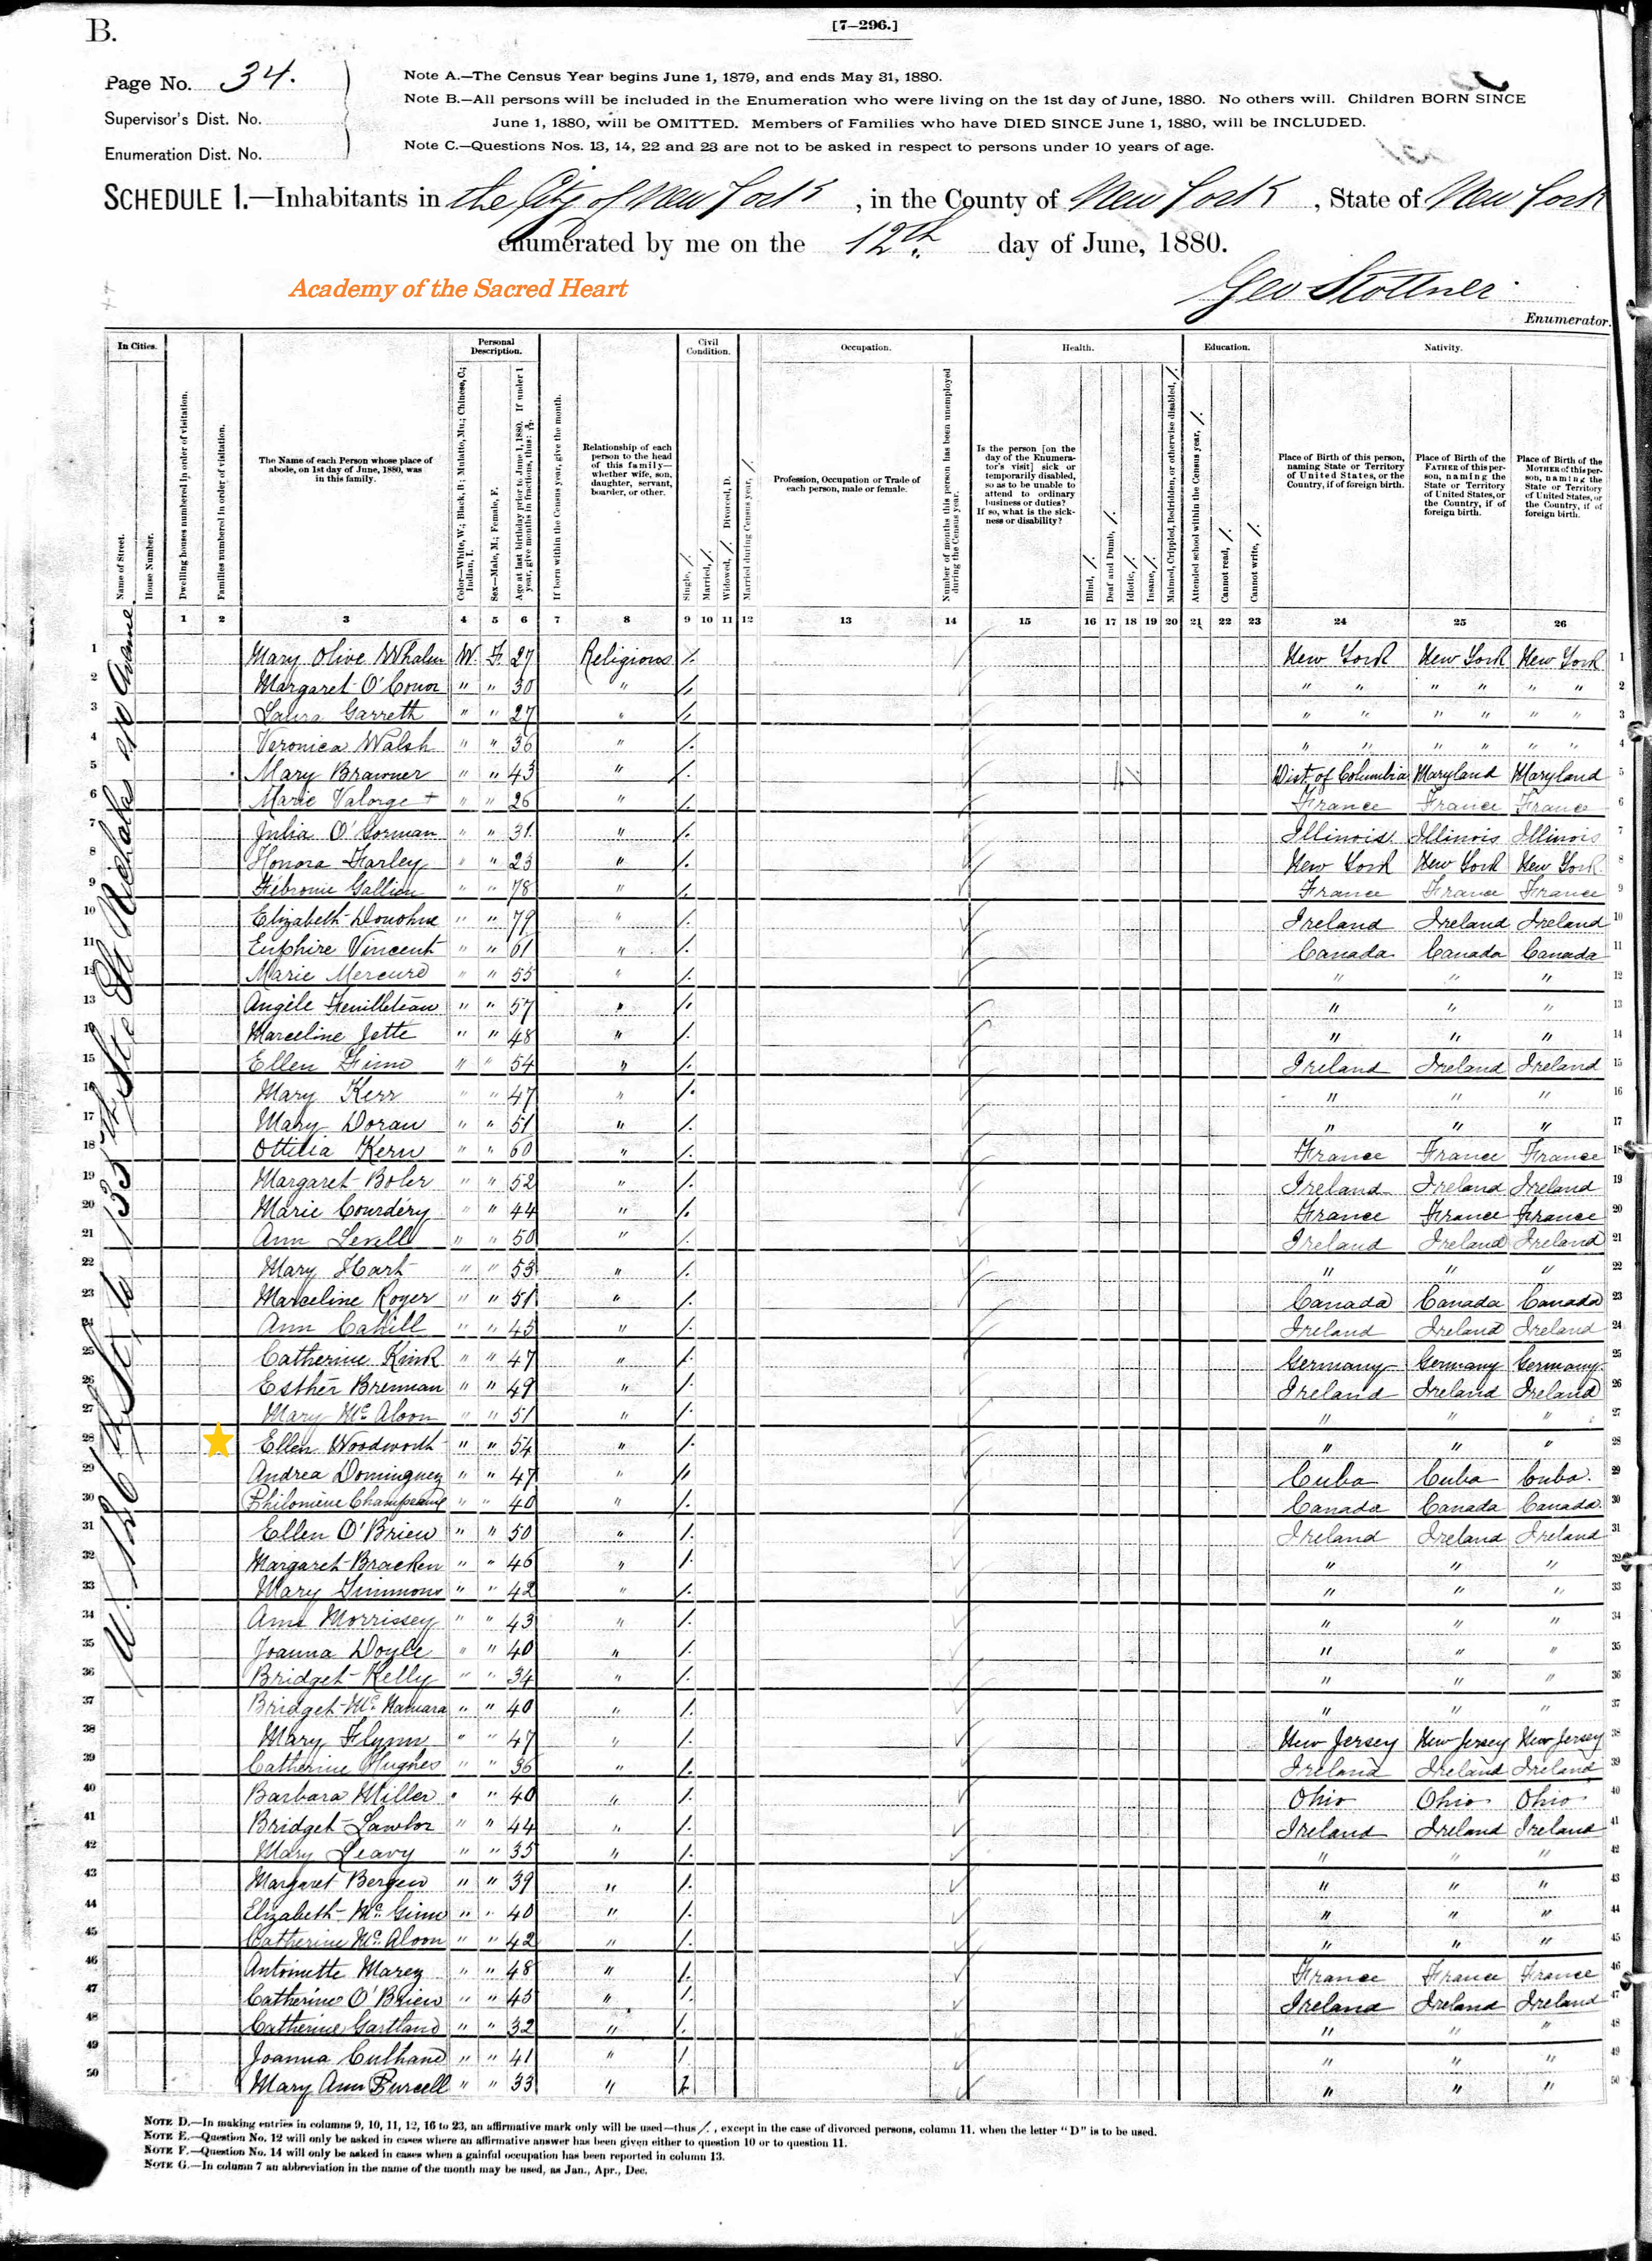 B.
[7–296.]
Page No. 34.
Supervisor's Dist. No.
Enumeration Dist. No.
Note A.—The Census Year begins June 1, 1879, and ends May 31, 1880.
Note B.—All persons will be included in the Enumeration who were living on the 1st day of June, 1880. No others will. Children BORN SINCE
June 1, 1880, will be OMITTED. Members of Families who have DIED SINCE June 1, 1880, will be INCLUDED.
Note C.—Questions Nos. 13, 14, 22 and 23 are not to be asked in respect to persons under 10 years of age.
SCHEDULE 1.—Inhabitants in the City of New York, in the County of New York, State of New York
enumerated by me on the 12th. day of June, 1880.
Academy of the Sacred Heart
Geo Stottner
Enumerator.
In Cities. Personal Description. Civil Condition. Occupation. Health. Education. Nativity.
Name of Street.
House Number.
Dwelling houses numbered in order of visitation.
Families numbered in order of visitation.
The Name of each Person whose place of abode, on 1st day of June, 1880, was in this family.
Color—White, W.; Black, B; Mulatto, Mu.; Chinese, C.; Indian, I.
Sex—Male, M.; Female, F.
Age at last birthday prior to June 1, 1880. If under 1 year, give months in fractions, thus:
If born within the Census year, give the month.
Relationship of each person to the head of this family—whether wife, son, daughter, servant, boarder, or other.
Single, /.
Married, /.
Widowed, /. Divorced, D.
Married during Census year, /.
Profession, Occupation or Trade of each person, male or female.
Number of months this person has been unemployed during the Census year.
Is the person [on the day of the Enumerator's visit] sick or temporarily disabled, so as to be unable to attend to ordinary business or duties? If so, what is the sickness or disability?
Blind, /.
Deaf and Dumb, /.
Idiotic, /.
Insane, /.
Maimed, Crippled, Bedridden, or otherwise disabled, /.
Attended school within the Census year, /.
Cannot read, /.
Cannot write, /.
Place of Birth of this person, naming State or Territory of United States, or the Country, if of foreign birth.
Place of Birth of the FATHER of this person, naming the State or Territory of United States, or the Country, if of foreign birth.
Place of Birth of the MOTHER of this person, naming the State or Territory of United States, or the Country, if of foreign birth.
1 2 3 4 5 6 7 8 9 10 11 12 13 14 15 16 17 18 19 20 21 22 23 24 25 26
1 Mary Olive Whalen W. F. 27 Religious /. New York New York New York 1
2 Margaret O'Conor " " 30 " /. " " " " " " 2
3 Laura Garreth " " 27 " /. " " " " " " 3
4 Veronica Walsh " " 36 " /. " " " " " " 4
5 Mary Brawner " " 43 " /. Dist. of Columbia Maryland Maryland 5
6 Marie Valorge + " " 26 " /. France France France 6
7 Julia O'Gorman " " 31 " /. Illinois Illinois Illinois 7
8 Honora Farley " " 23 " /. New York New York New York 8
9 Fébronie Gallien " " 78 " /. France France France 9
10 Elizabeth Donohue " " 79 " /. Ireland Ireland Ireland 10
11 Euphire Vincent " " 61 " /. Canada Canada Canada 11
12 Marie Mercure " " 55 " /. " " " 12
13 Angèle Feuilleteau " " 57 " /. " " " 13
14 Marceline Jetté " " 48 " /. " " " 14
15 Ellen Finn " " 54 " /. Ireland Ireland Ireland 15
16 Mary Kerr " " 47 " /. " " " 16
17 Mary Doran " " 51 " /. " " " 17
18 Ottilia Kern " " 60 " /. France France France 18
19 Margaret Boler " " 52 " /. Ireland Ireland Ireland 19
20 Marie Courdéry " " 44 " /. France France France 20
21 Ann " " 50 " /. Ireland Ireland Ireland 21
22 Mary Hart " " 53 " /. " " " 22
23 Marceline Royer " " 51 " /. Canada Canada Canada 23
24 Ann Cahill " " 45 " /. Ireland Ireland Ireland 24
25 Catherine Kink " " 47 " /. Germany Germany Germany 25
26 Esther Brennan " " 49 " /. Ireland Ireland Ireland 26
27 Mary McAloon " " 51 " /. " " " 27
28 Ellen Woodworth " " 54 " /. " " " 28
29 Andrea Dominguez " " 47 " /. Cuba Cuba Cuba. 29
30 Philomène " " 40 " /. Canada Canada Canada. 30
31 Ellen O'Brien " " 50 " /. Ireland Ireland Ireland 31
32 Margaret Bracken " " 46 " /. " " " 32
33 Mary Simmons " " 42 " /. " " " 33
34 Ann Morrissey " " 43 " /. " " " 34
35 Joanna Doyle " " 40 " /. " " " 35
36 Bridget Kelly " " 34 " /. " " " 36
37 Bridget McNamara " " 40 " /. " " " 37
38 Mary Flynn " " 47 " /. New Jersey New Jersey New Jersey 38
39 Catherine Hughes " " 36 " /. Ireland Ireland Ireland 39
40 Barbara Miller " " 40 " /. Ohio Ohio Ohio 40
41 Bridget Lawlor " " 44 " /. Ireland Ireland Ireland 41
42 Mary Leavy " " 35 " /. " " " 42
43 Margaret Bergen " " 39 " /. " " " 43
44 Elizabeth McGinn " " 40 " /. " " " 44
45 Catherine McAloon " " 42 " /. " " " 45
46 Antoinette Marey " " 48 " /. France France France 46
47 Catherine O'Brien " " 45 " /. Ireland Ireland Ireland 47
48 Catherine Gartland " " 32 " /. " " " 48
49 Joanna Culhane " " 41 " / " " " 49
50 Mary Ann Purcell " " 33 " /. " " " 50
NOTE D.—In making entries in columns 9, 10, 11, 12, 16 to 23, an affirmative mark only will be used—thus /., except in the case of divorced persons, column 11, when the letter "D" is to be used.
NOTE E.—Question No. 12 will only be asked in cases where an affirmative answer has been given either to question 10 or to question 11.
NOTE F.—Question No. 14 will only be asked in cases when a gainful occupation has been reported in column 13.
NOTE G.—In column 7 an abbreviation in the name of the month may be used, as Jan., Apr., Dec.